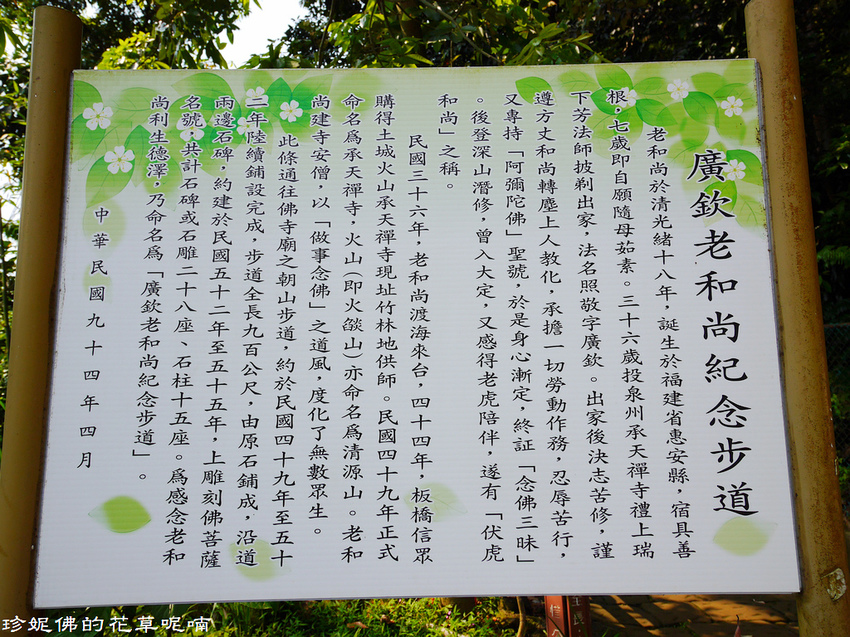 廣欽老和尚紀念步道
老和尚於清光緒十八年，誕生於福建省惠安縣，宿具善
根，七歲即自願隨母茹素。三十六歲投泉州承天禪寺禮上瑞
下芳法師披剃出家，法名照敬字廣欽。出家後決志苦修，謹
遵方丈和尚轉塵上人教化，承擔一切勞動作務，忍辱苦行，
又專持「阿彌陀佛」聖號，於是身心漸定，終証「念佛三昧」
。後登深山潛修，曾入大定，又感得老虎陪伴，遂有「伏虎
和尚」之稱。
民國三十六年，老和尚渡海來台，四十四年，板橋信眾
購得土城火山承天禪寺現址竹林地供師。民國四十九年正式
命名為承天禪寺，火山（即火燄山）亦命名為清源山。老和
尚建寺安僧，以「做事念佛」之道風，度化了無數眾生。
此條通往佛寺廟之朝山步道，約於民國四十九年至五十
二年陸續鋪設完成，步道全長九百公尺，由原石鋪成，沿道
兩邊石碑，約建於民國五十二年至五十五年，上雕刻佛菩薩
名號，共計石碑或石雕二十八座、石柱十五座。為感念老和
尚利生德澤，乃命名為「廣欽老和尚紀念步道」。
中華民國九十四年四月
珍妮佛的花草呢喃